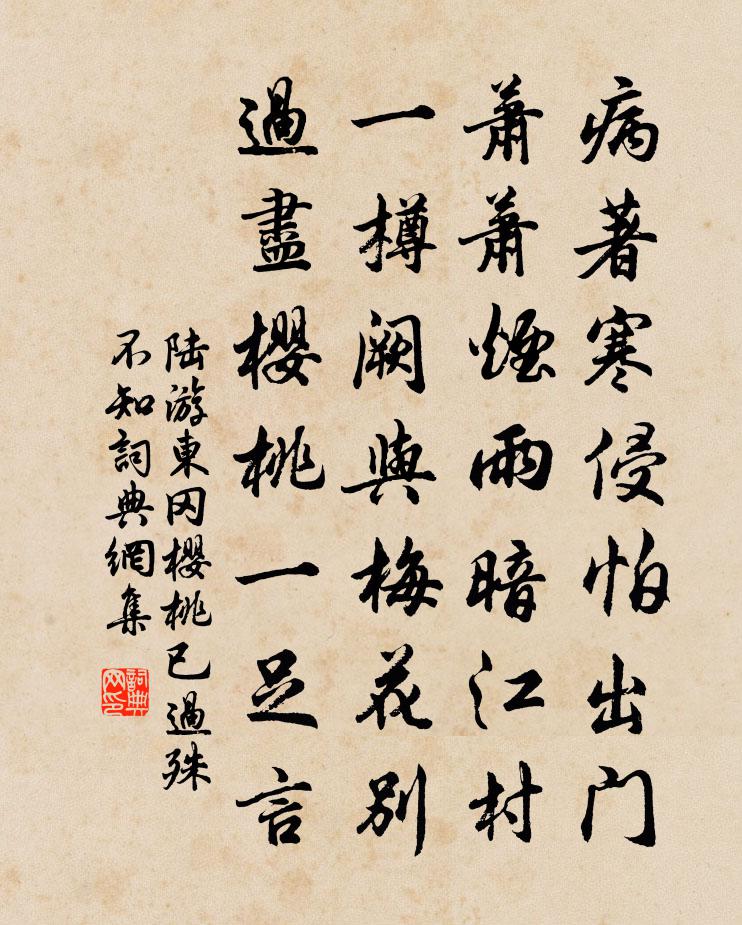 病著寒侵怕出门
萧萧煙雨暗江村
一樽阙與梅花别
過盡櫻桃一足言
陆游東冈櫻桃已過殊
不知詞典網集
詞典
网印